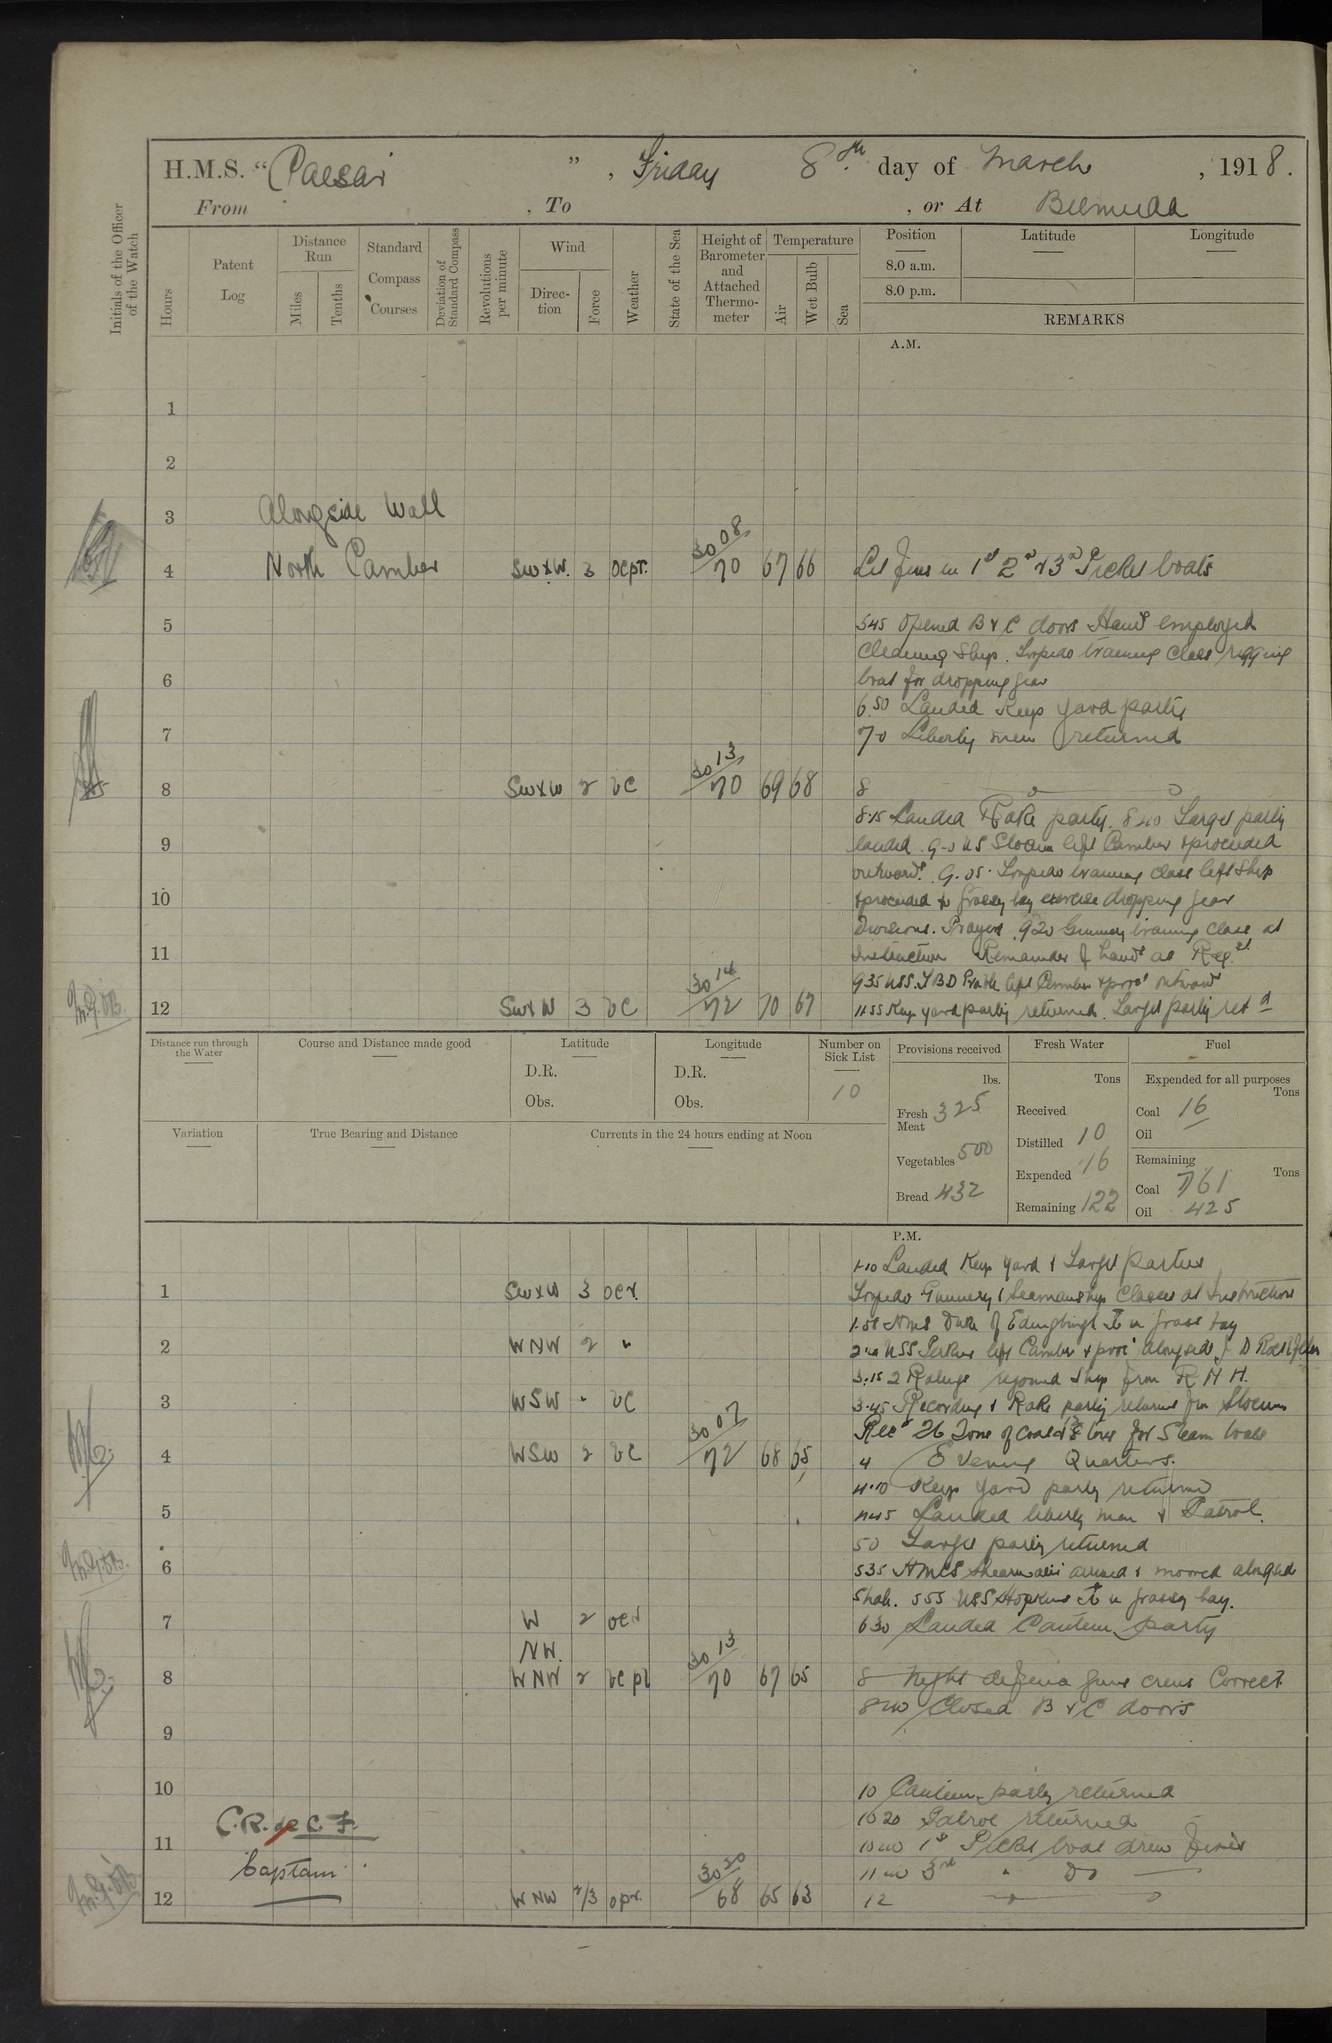 H.M.S. "Caesar", Friday 8th. day of March, 1918.
From , To , or At Bermuda
Initials of the Officer of the Watch
Hours
Patent Log
Distance Run
Miles
Tenths
Standard Compass Courses
Deviation of Standard Compass
Revolutions per minute
Wind
Direction
Force
Weather
State of the Sea
Height of Barometer and Attached Thermometer
Temperature
Air
Wet Bulb
Sea
Position Latitude Longitude
8.0 a.m.
8.0 p.m.
REMARKS
A.M.
1
2
3 Alongside Wall
4 North Camber SWxW. 3 ocpr. 30 08/70 67 66 Lit fires in 1st 2nd & 3rd Picket boats
5 545 Opened B & C doors Hands employed
Cleaning Ship. Torpedo training Class rigging
6 boat for dropping gear
6.50 Landed Keep yard party
7 70 Liberty men returned
8 SWxW 2 bc 30 13/70 69 68 8
8.15 Landed Rake party. 840 Target party
9 landed. 9-0 US Slocum left Camber & proceeded
outwards. 9.05. Torpedo training class left Ship
10 & proceeded to Grassy bay exercise dropping gear
Divisions. Prayers. 920 Gunnery training Class at
11 Instruction Remainder of hands as Req.
935 USS. TBD left Camber & procd outwards
12 SWxW 3 bc 30 14/72 70 67 1155 Keep yard party returned. Target party retd
Distance run through the Water
Course and Distance made good
Latitude
D.R.
Obs.
Longitude
D.R.
Obs.
Number on Sick List
10
Provisions received
lbs.
Fresh Meat 325
Vegetables 500
Bread 432
Fresh Water
Tons
Received
Distilled 10
Expended 16
Remaining 122
Fuel
Expended for all purposes
Tons
Coal 16
Oil
Remaining
Tons
Coal 761
Oil 425
Variation
True Bearing and Distance
Currents in the 24 hours ending at Noon
P.M.
1.10 Landed Keep Yard & Target parties
1 SWxW 3 ocr. Torpedo Gunnery & Seamanship Classes at Instruction
1.58 HMS Duke of Edinburgh in Grassy bay
2 WNW 2 " USS Perkins left Camber & procd alongside J D
3.15 2 rejoined Ship from R N H.
3 WSW " bc 3.45 Recording & Rake party returned from Slocum
Recd 26 Tons of coal for Steam boats
4 WSW 2 bc 30 07/72 68 65 4 Evening Quarters.
4.10 Keep Yard party returned
5 445 Landed liberty men & Patrol.
50 Target party returned
6 535 HMCS arrived & moored alongside
555 USS Hopkins in Grassy bay.
7 W 2 ocr 630 Landed Canteen party
NW.
8 WNW 2 bc pr 30 13/70 67 65 8 Night defence guns crews Correct
840 Closed B & C doors
9
10 10 Canteen party returned
C.R. de C. F. 1020 Patrol returned
11 1040 1st Picket boat drew fires
Captain 1140 3rd " Do
12 WNW 2/3 opr. 30 20/68 65 63 12